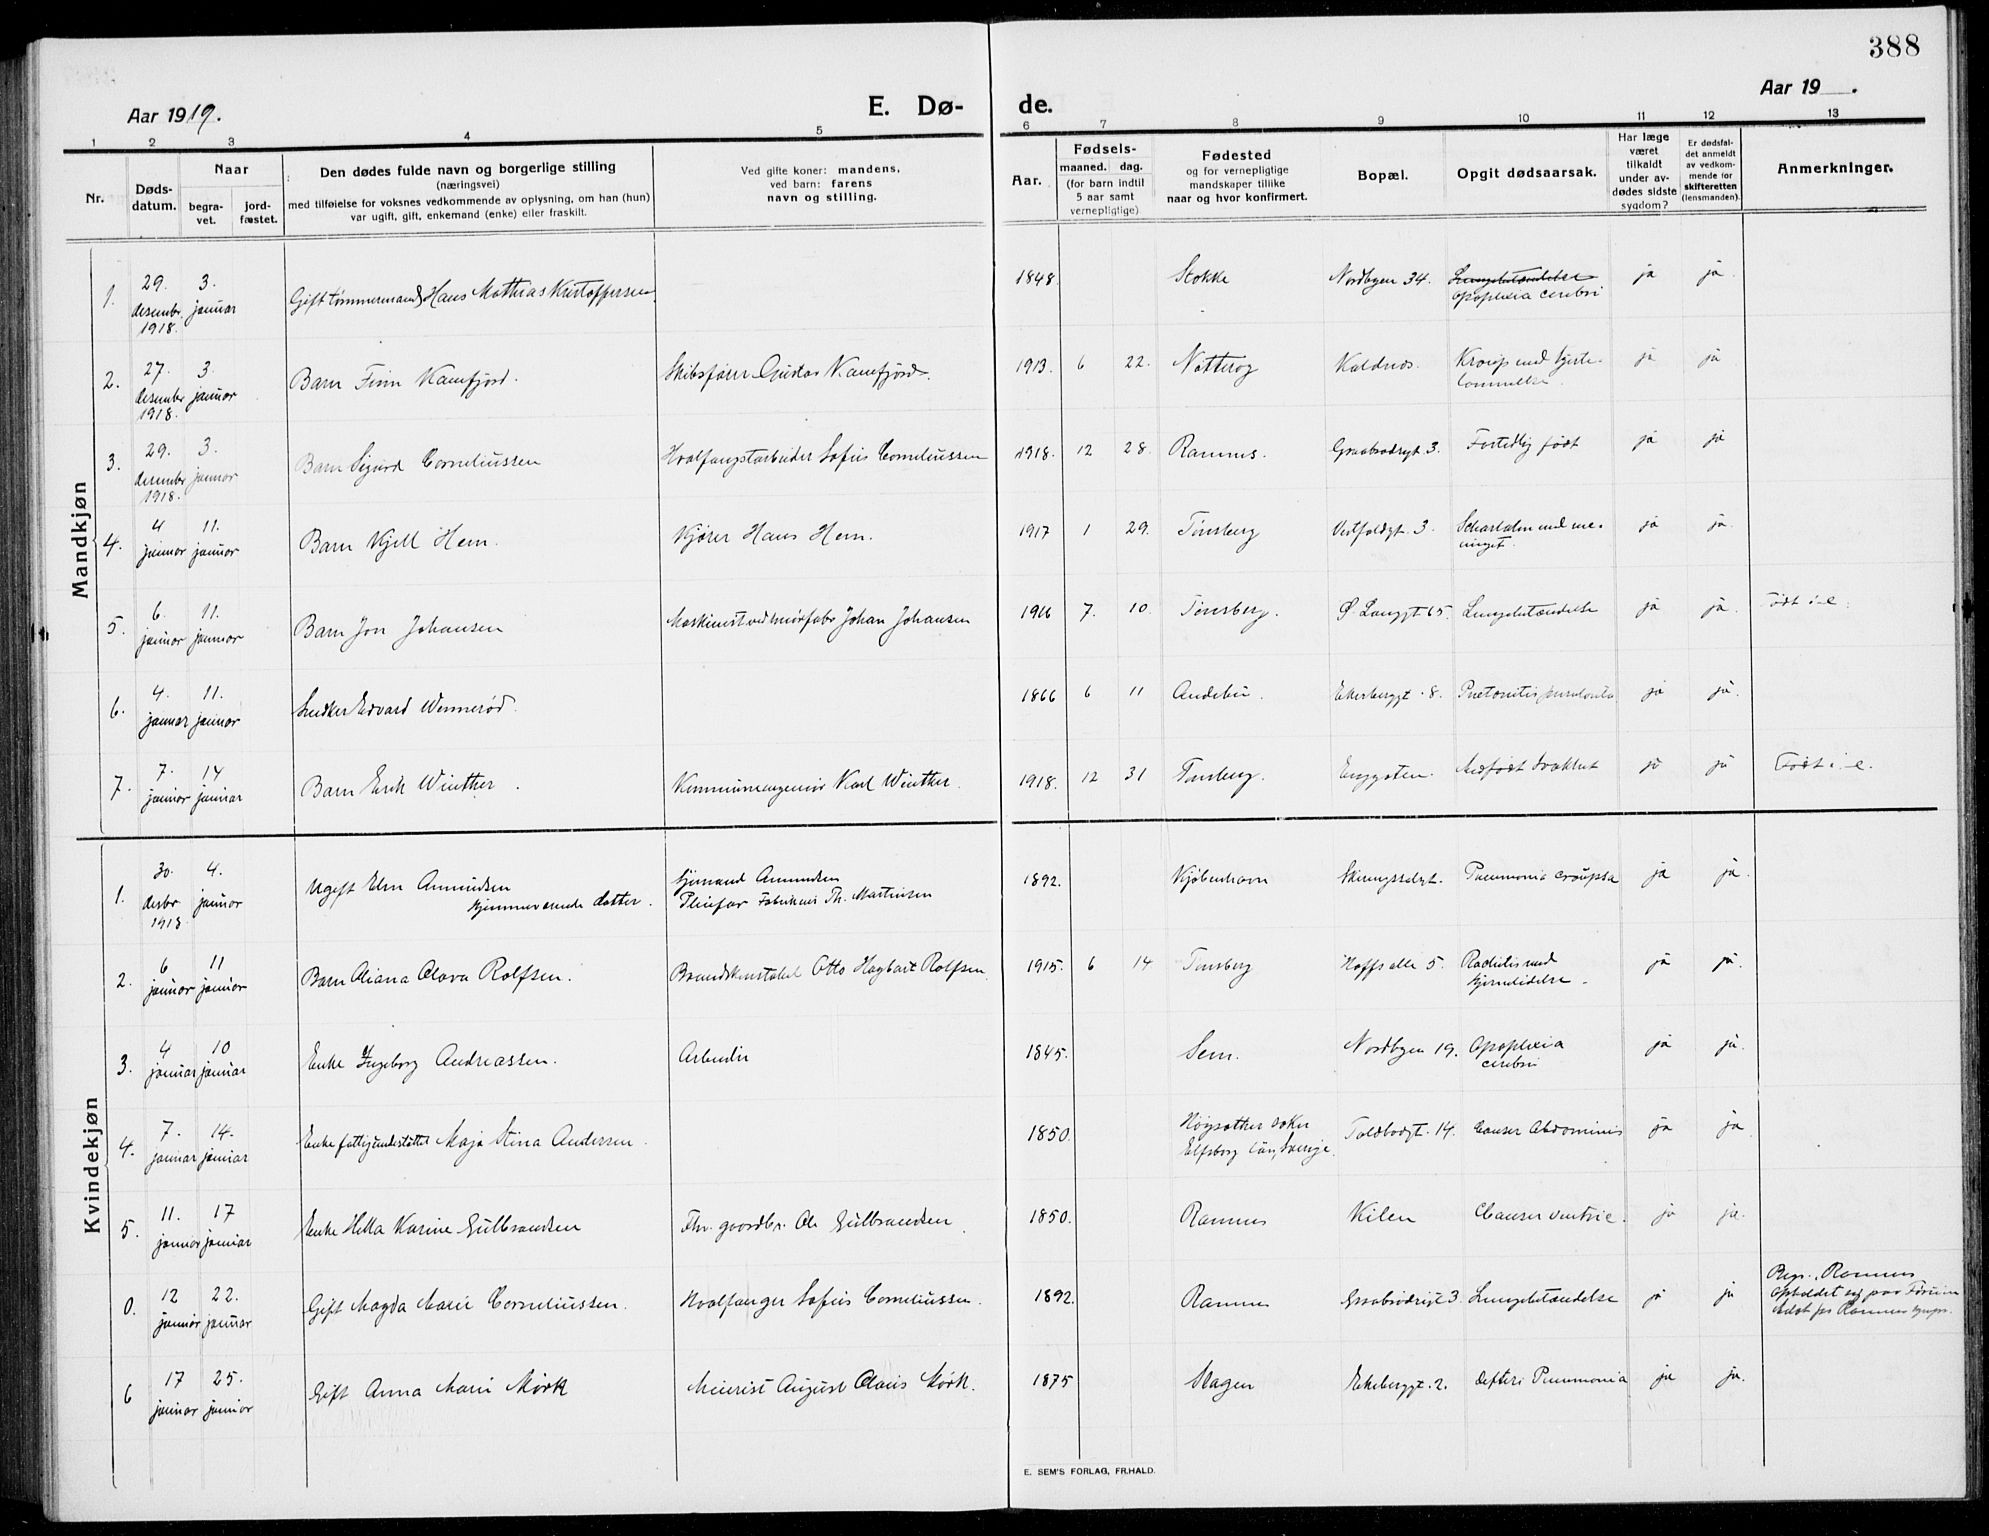 388
Aar 1919.
E. Dø-
de.
Aar 19 .
1 2 3 4 5 6 7 8 9 10 11 12 13
Nr.
Døds-
datum.
Naar
begra-
vet.
jord-
fæstet.
Den dødes fulde navn og borgerlige stilling
(næringsvei)
med tilføielse for voksnes vedkommende av oplysning, om han (hun)
var ugift, gift, enkemand (enke) eller fraskilt.
Ved gifte koner: mandens,
ved barn: farens
navn og stilling.
Aar.
Fødsels-
maaned. dag.
(for barn indtil
5 aar samt
vernepligtige)
Fødested
og for vernepligtige
mandskaper tillike
naar og hvor konfirmert.
Bopæl.
Opgit dødsaarsak.
Har læge
været
tilkaldt
under av-
dødes sidste
sygdom?
Er dødsfal-
det anmeldt
av vedkom-
mende for
skifteretten
(lensmanden).
Anmerkninger.
Mandkjøn
1. 29. desembr. 1918. 3. januar Gift tømmermand Hans Mathias Kristoffersen 1848. Stokke Nordbyen 34. Lungebetændelse apoplexia cerebri ja ja.
2. 27. desember 1918. 3. januar Barn Finn Kamfjord. Skibsfører Gustav Kamfjord. 1913. 6 22. Nøtterøy Kaldnes. Kroup med hjerte- lammelse. ja ja
3. 29. desember 1918. 3. januar Barn Sigurd Corneliussen Hvalfangstarbeider Sofus Corneliussen 1918. 12 28. Ramnes. Graabrødregt. 3. Fortidlig født ja ja
4. 4 januar 11. januar Barn Kjell Hem. Kjører Hans Hem. 1917 1 29. Tønsberg Vestfoldgt. 3. ja ja.
5. 6. januar 11. januar Barn Jon Johansen Johan Johansen 1916 7. 10. Tønsberg. Ø. Langgt. 65. Lungebetændelse ja ja. Født i-e.
6. 4. januar 11. januar Snedker Edvard Wennerød. 1866 6 11 Andebu. Ekebergt. 8. ja ja.
7. 7. januar 14 januar Barn Erik Winther. Karl Winther. 1918. 12 31 Tønsberg. Medfødt svakhet ja ja Født i. e.
Kvindekjøn
1. 30. desbr 1918 4. januar Ugift Amundsen hjemmeværende datter. Sjømand Amundsen Pleiefar Fabrikeier Th. Martinsen 1892. Kjøbenhavn Skiringssalgt. Pneumonia croupsa ja ja.
2. 6 januar 11 januar Barn Oliana Olava Rolfsen. Brandkonstabel Otto Hagbart Rolfsen 1915. 6 14 Tønsberg Hoffs alle 5. ja ja.
3. 4 januar 10 januar Enke Ingeborg Andreassen. Arbeider 1845. Sem. Nordbyen 19. Apoplexia cerebri ja ja.
4. 7. januar 14. januar Enke fattigunderstøttet Maja Stina Andersen. 1850. Elfsborg län, Sverige. Toldbodgt. 14. Cancer Abdominis ja ja
5. 11. januar 17 januar Enke Karine Gulbrandsen Fhv. gaardbr. Ole Gulbrandsen 1850. Ramnes Kilen Cancer ventric. ja ja.
0. 12 januar 22. januar Gift Magda Marie Corneliussen. Hvalfanger Sofus Corneliussen. 1892. Ramnes Graabrødregt 3. Lungebetændelse ja ja Begr. Ramnes opholdet sig paa
6 17 januar 25. januar Gift Anna Marie Mørk Meierist August Olaus Mørk. 1875 Slagen Ekebergt. 2. Pneumonia ja ja.
E. SEM'S FORLAG, FR.HALD.